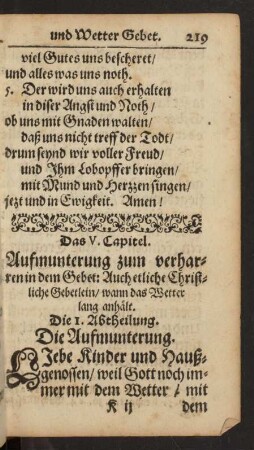 und Wetter Gebet. 219
viel Gutes uns bescheret/
und alles was uns noth.
5. Der wird uns auch erhalten
in diser Angst und Noth/
ob uns mit Gnaden walten/
daß uns nicht treff der Todt/
drum seynd wir voller Freud/
und Ihm Lobopffer bringen/
mit Mund und Hertzen singen/
jetzt und in Ewigkeit. Amen!
Das V. Capitel.
Aufmunterung zum verhar-
ren in dem Gebet: Auch etliche Christ-
liche Gebetlein/ wann das Wetter
lang anhält.
Die 1. Abtheilung.
Die Aufmunterung.
LJebe Kinder und Hauß-
genossen/ weil Gott noch im-
mer mit dem Wetter / mit
K ij dem